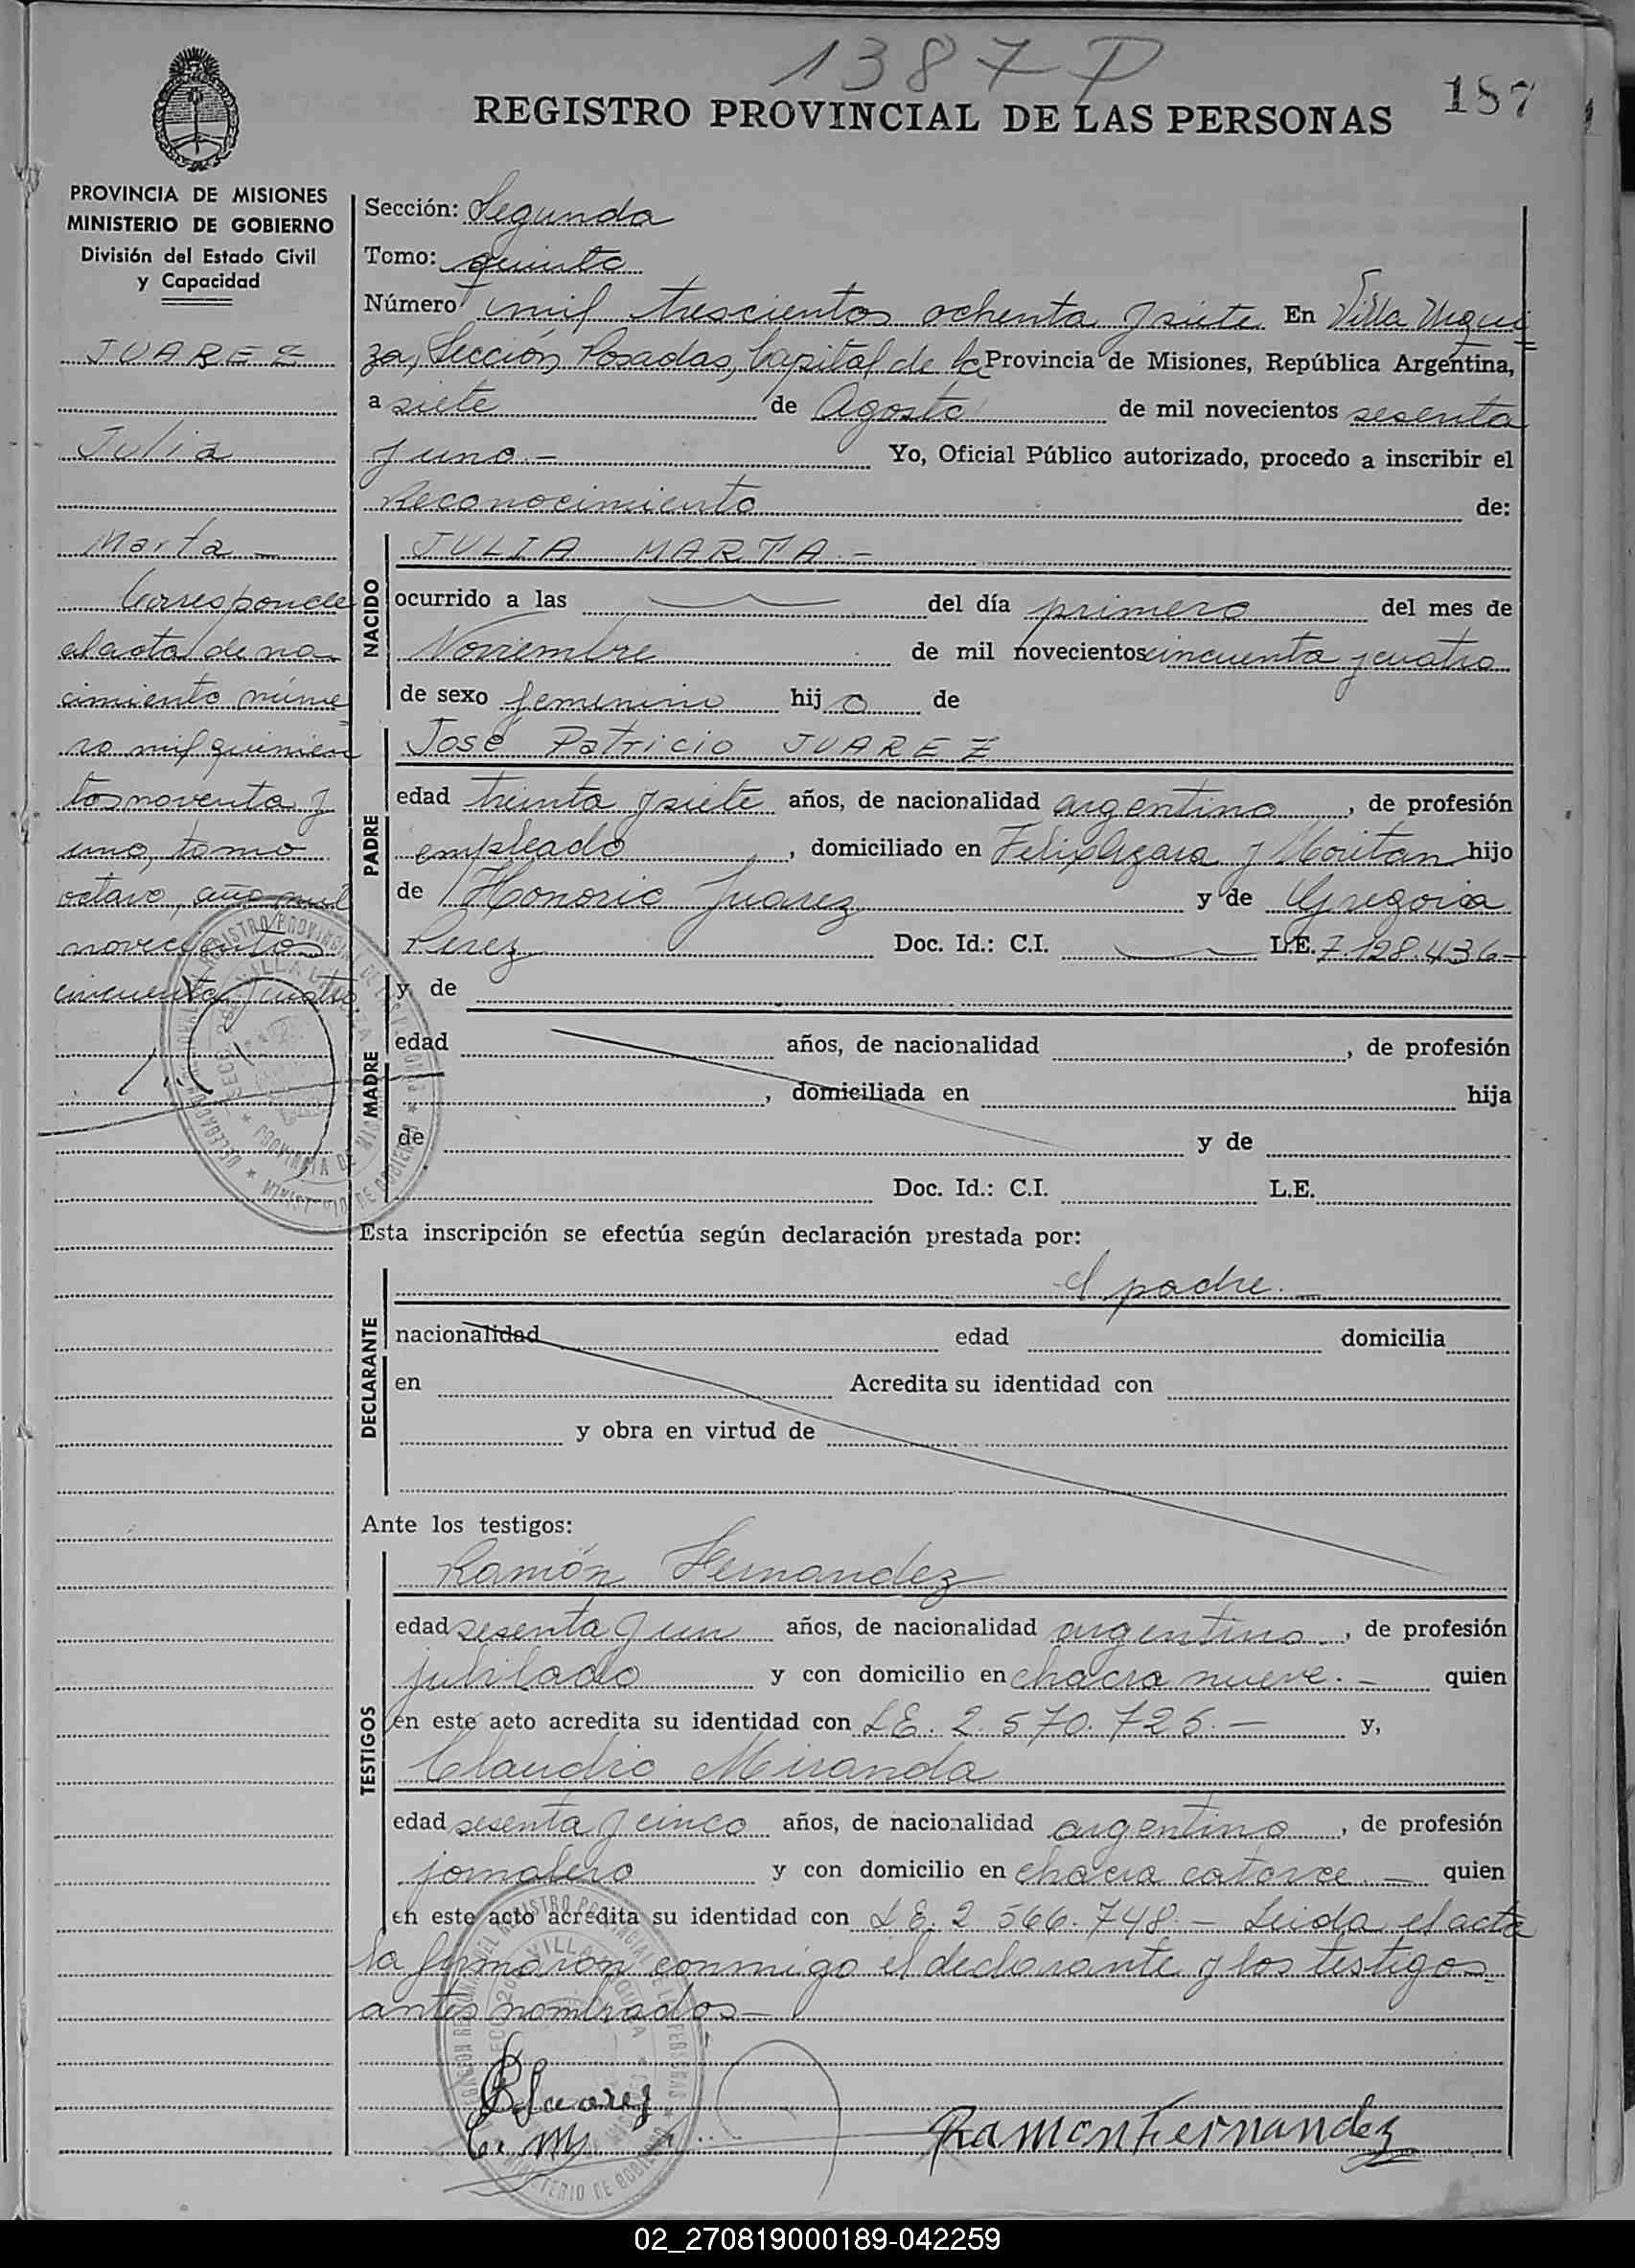 1387 P
187
REGISTRO PROVINCIAL DE LAS PERSONAS
PROVINCIA DE MISIONES
MINISTERIO DE GOBIERNO
División del Estado Civil
y Capacidad
JUAREZ
Julia
Marta -
Corresponde
al acta de na
cimiento núme
ro mil quinien
tos noventa y
uno, tomo
octavo, año mil
novecientos
cincuenta y cuatro
Sección: Segunda
Tomo: quinto
Número mil trescientos ochenta y siete En Villa Urqui
za, Sección Posadas, Capital de la Provincia de Misiones, República Argentina,
a siete de Agosto de mil novecientos sesenta
y uno.- Yo, Oficial Público autorizado, procedo a inscribir el
Reconocimiento de:
NACIDO
JULIA MARTA.-
ocurrido a las del día primero del mes de
Noviembre de mil novecientos cincuenta y cuatro
de sexo femenino hij a de
PADRE
José Patricio JUAREZ
edad treinta y siete años, de nacionalidad argentino, de profesión
empleado, domiciliado en Felix Azara y Moritan hijo
de Honorio Juarez y de Gregoria
Perez Doc. Id.: C.I. L.E. 7.128.436-
MADRE
y de
edad años, de nacionalidad , de profesión
, domiciliada en hija
de y de
Doc. Id.: C.I. L.E.
Esta inscripción se efectúa según declaración prestada por:
DECLARANTE
el padre.-
nacionalidad edad domicilia
en Acredita su identidad con
y obra en virtud de
Ante los testigos:
TESTIGOS
Ramón Fernandez
edad sesenta y un años, de nacionalidad argentino, de profesión
jubilado y con domicilio en chacra nueve.- quien
en este acto acredita su identidad con L.E. 2.570.725.- y,
Claudio Miranda
edad sesenta y cinco años, de nacionalidad argentino, de profesión
jornalero y con domicilio en chacra catorce.- quien
en este acto acredita su identidad con L.E. 2 566.748.- Leida el acta
la firmaron conmigo el declarante y los testigos
antes nombrados-
Ramon Fernandez
02_270819000189-042259